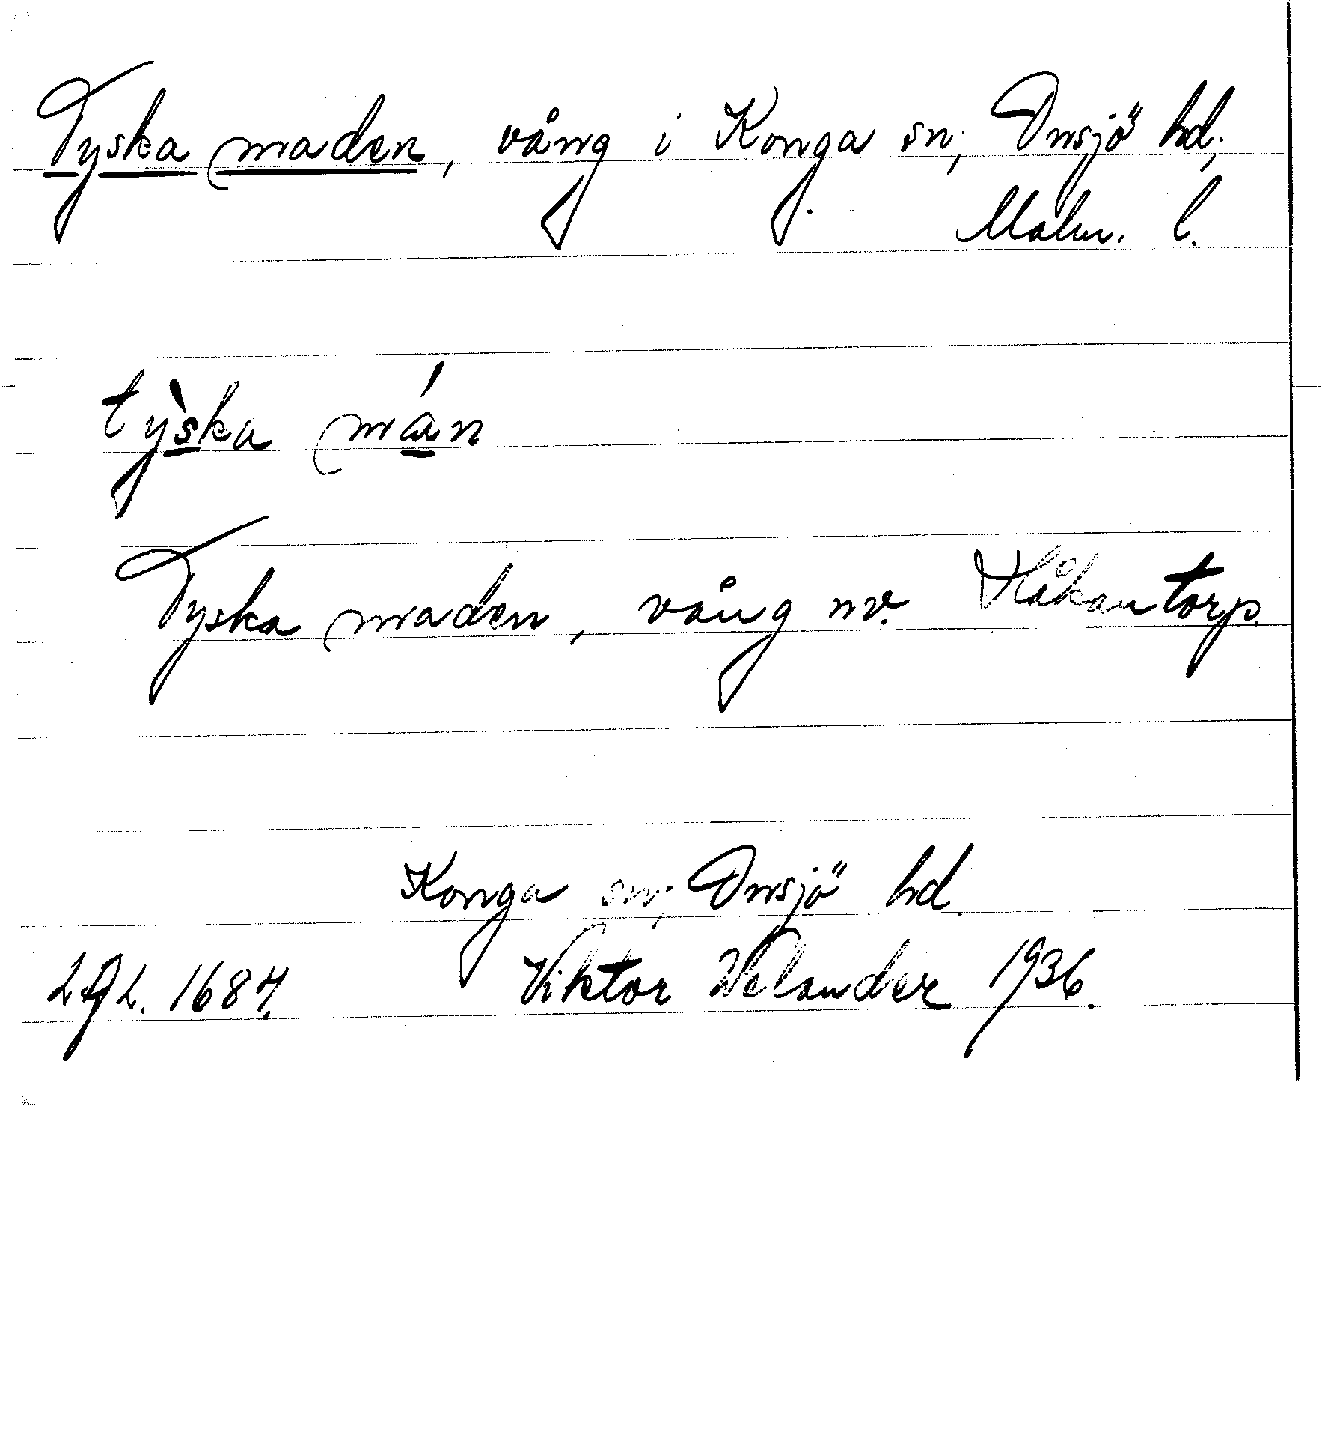 Tyska maden, vång i Konga sn, Onsjö hd,
Malm. l.
tỳska mán
Tyska maden, vång nv. Håkantorp.
Konga sn, Onsjö hd.
1684. Viktor Welander 1936.